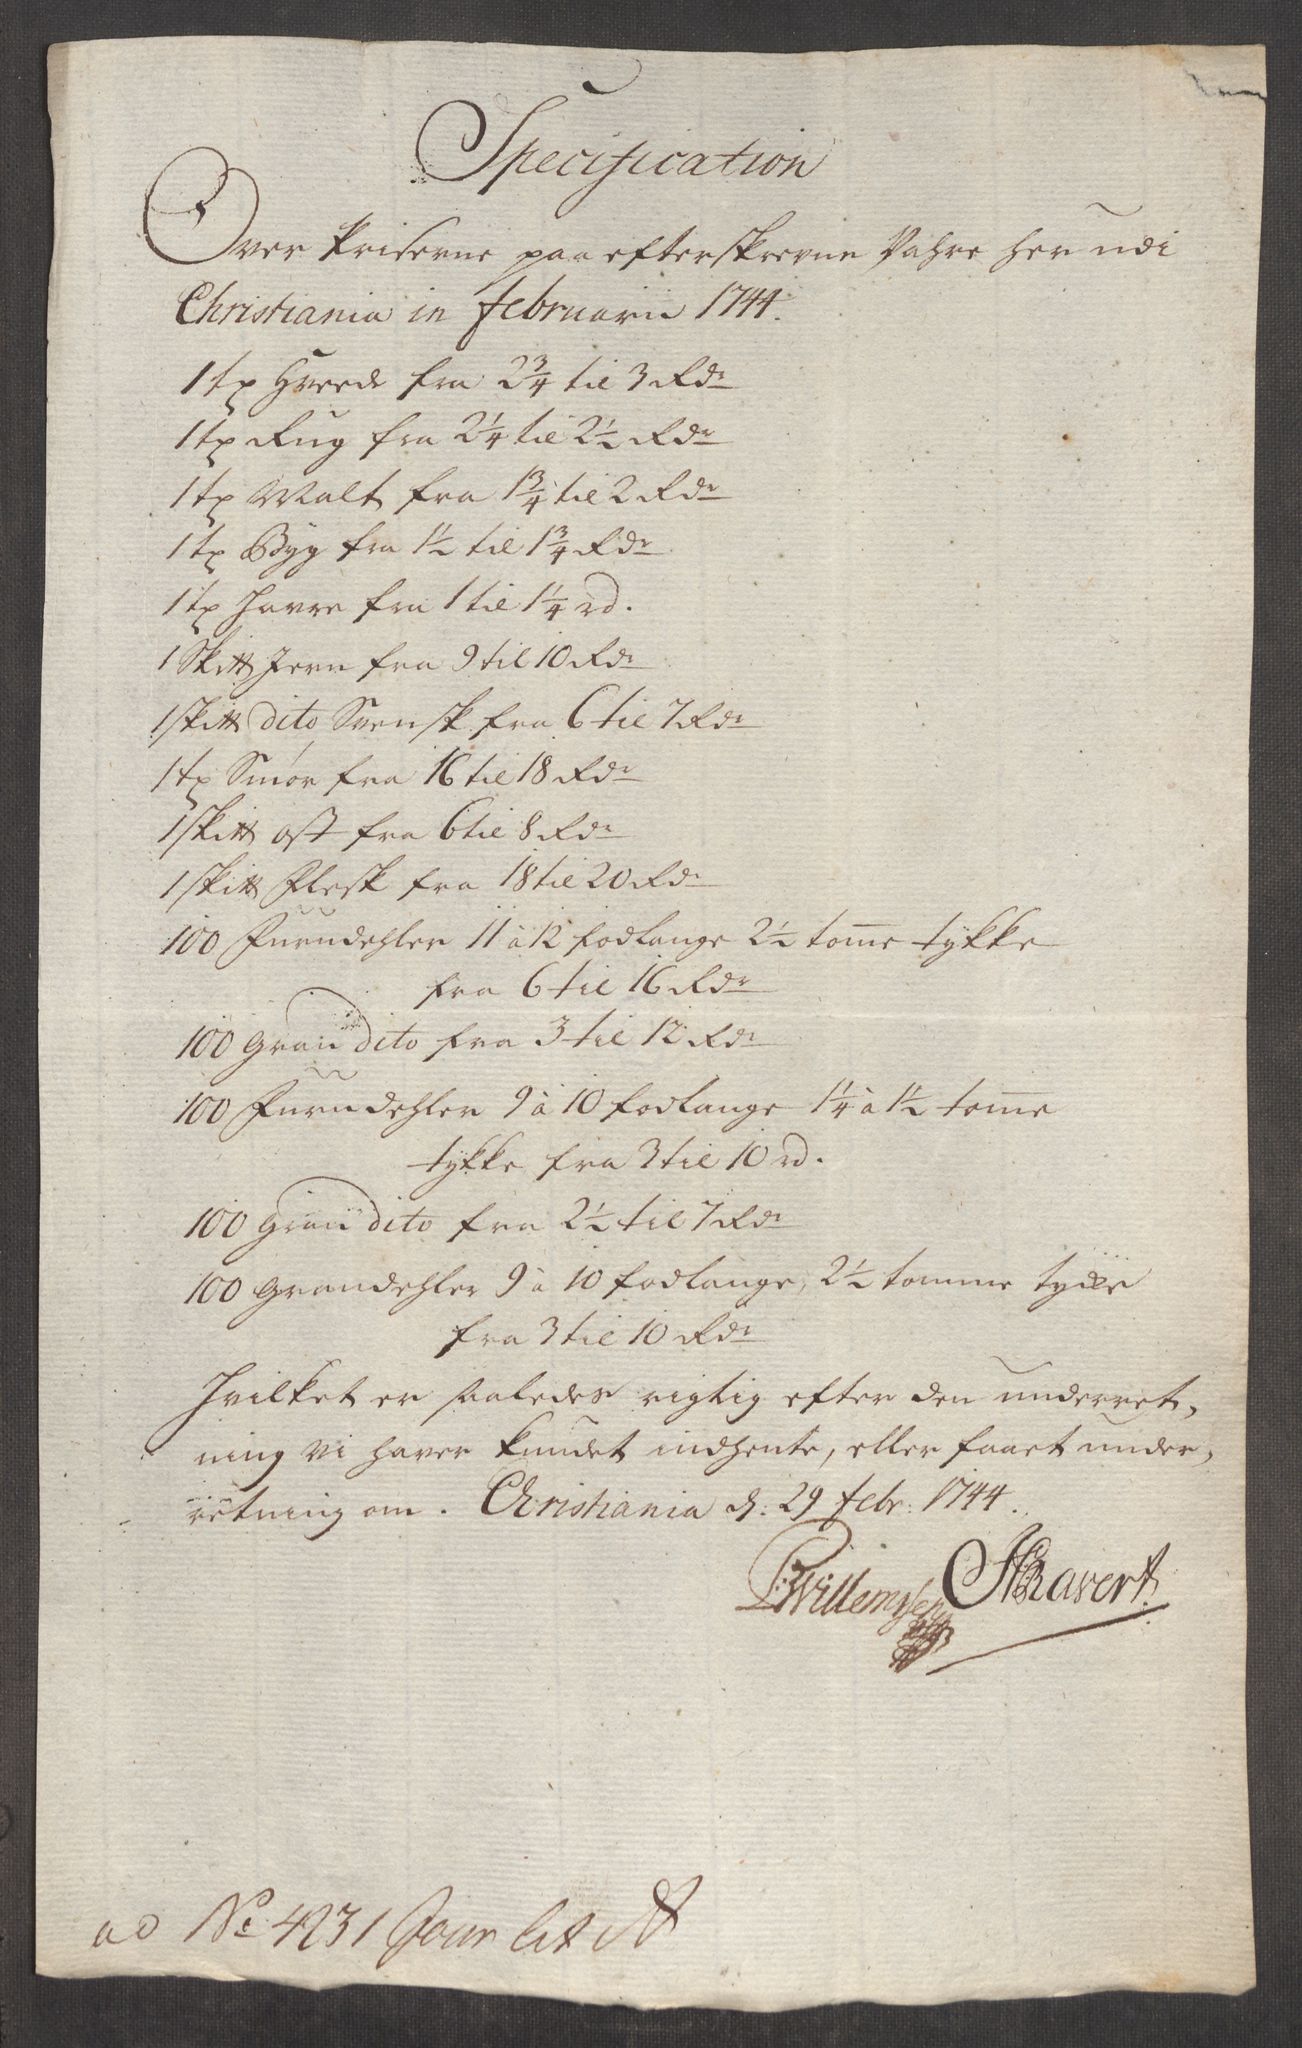 Specification
Over Priserne paa efterskrevne Vahre her udi
Christiania in Februarii 1744.
1 tø Hvede fra 2 3/4 til 3 Rdr
1 tø Rug fra 2 1/4 til 2 1/2 Rdr
1 tø Malt fra 1 3/4 til 2 Rdr
1 tø Byg fra 1 1/2 til 1 3/4 Rdr
1 tø Havre fra 1 til 1 1/4 rd.
1 Skitt Jern fra 9 til 10 Rdr
1 skitt dito Svensk fra 6 til 7 Rdr
1 tø Smør fra 16 til 18 Rdr
1 skitt ost fra 6 til 8 Rdr
1 skitt Flesk fra 18 til 20 Rdr
100 Furudehler 11 à 12 fodlange 2 1/2 tom̄e tykke
fra 6 til 16 Rdr
100 Gran dito fra 3 til 12 Rdr
100 Furudehler 9 à 10 fodlange 1 1/4 à 1 1/2 tom̄e
tykke fra 3 til 10 rd.
100 Gran dito fra 2 1/2 til 7 Rdr
100 Grandehler 9 à 10 fodlange, 2 1/2 tomme tycke
fra 3 til 10 Rdr
Hvilket er saaledes rigtig efter den underret,
ning vi haver kundet indhente, eller faaet under,
retning om. Christiania d: 29 Febr: 1744.
Willemsen Ravert
ad No 4231 Jour Lit A